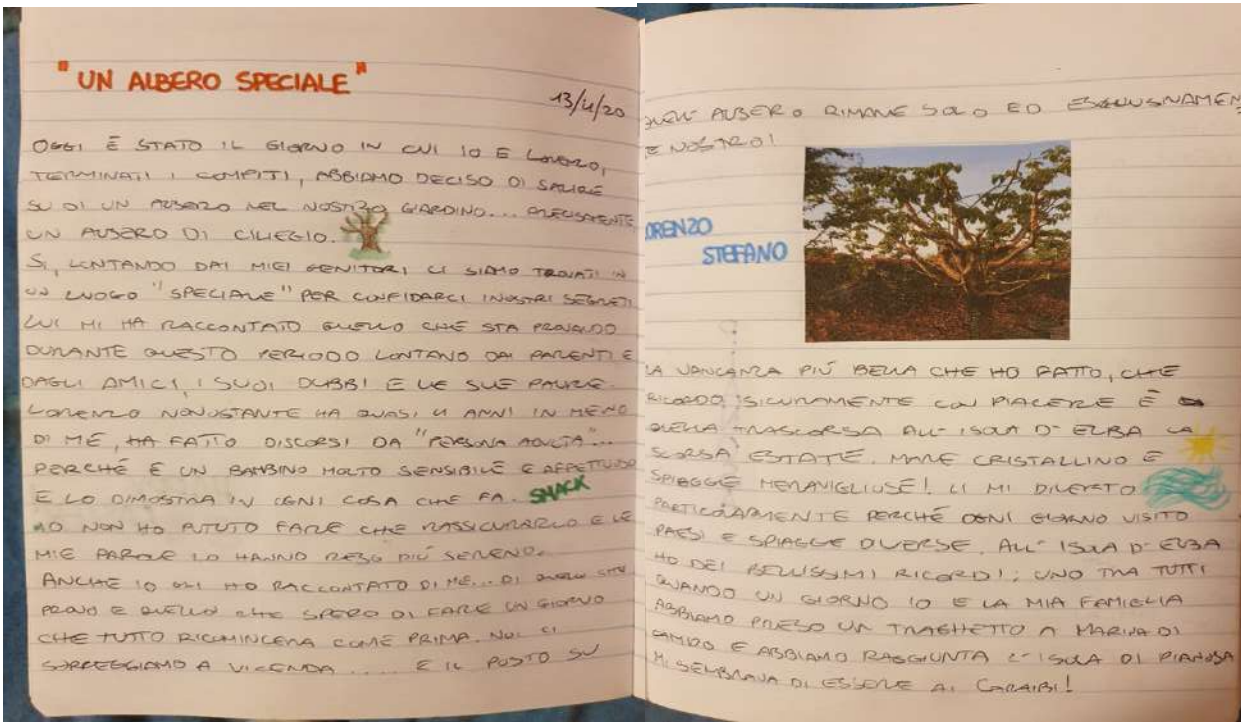 "UN ALBERO SPECIALE"
13/4/20
OGGI È STATO IL GIORNO IN CUI IO E LORENZO,
TERMINATI I COMPITI, ABBIAMO DECISO DI SALIRE
SU DI UN ALBERO NEL NOSTRO GIARDINO... PRECISAMENTE
UN ALBERO DI CILIEGIO.
SI, LONTANDO DAI MIEI GENITORI CI SIAMO TROVATI IN
UN LUOGO "SPECIALE" PER CONFIDARCI I NOSTRI SEGRETI
LUI MI HA RACCONTATO QUELLO CHE STA PROVANDO
DURANTE QUESTO PERIODO LONTANO DAI PARENTI E
DAGLI AMICI, I SUOI DUBBI E LE SUE PAURE.
LORENZO NONOSTANTE HA QUASI 4 ANNI IN MENO
DI ME, HA FATTO DISCORSI DA "PERSONA ADULTA"...
PERCHÉ È UN BAMBINO MOLTO SENSIBILE E AFFETTUOSO
E LO DIMOSTRA IN OGNI COSA CHE FA. SMACK
IO NON HO POTUTO FARE CHE RASSICURARLO E LE
MIE PAROLE LO HANNO RESO PIÚ SERENO.
ANCHE IO GLI HO RACCONTATO DI ME... DI QUELLO CHE
PROVO E QUELLO CHE SPERO DI FARE UN GIORNO
CHE TUTTO RICOMINCERA COME PRIMA. NOI CI
SORREGGIAMO A VICENDA ..... E IL POSTO SU
QUELL' ALBERO RIMANE SOLO ED
E NOSTRO!
LORENZO
STEFANO
LA VANCANZA PIÚ BELLA CHE HO FATTO, CHE
RICORDO SICURAMENTE CON PIACERE È
QUELLA TRASCORSA ALL' ISOLA D' ELBA LA
SCORSA ESTATE. MARE CRISTALLINO E
SPIAGGE MERAVIGLIOSE! LI MI DIVERTO
PARTICOLARMENTE PERCHÉ OGNI GIORNO VISITO
PAESI E SPIAGGE DIVERSE. ALL' ISOLA D' ELBA
HO DEI BELLISSIMI RICORDI; UNO TRA TUTTI
QUANDO UN GIORNO IO E LA MIA FAMIGLIA
ABBIAMO PRESO UN TRAGHETTO A MARINA DI
CAMPO E ABBIAMO RAGGIUNTA L' ISOLA DI PIANOSA
MI SEMBRAVA DI ESSERE AI CARAIBI!